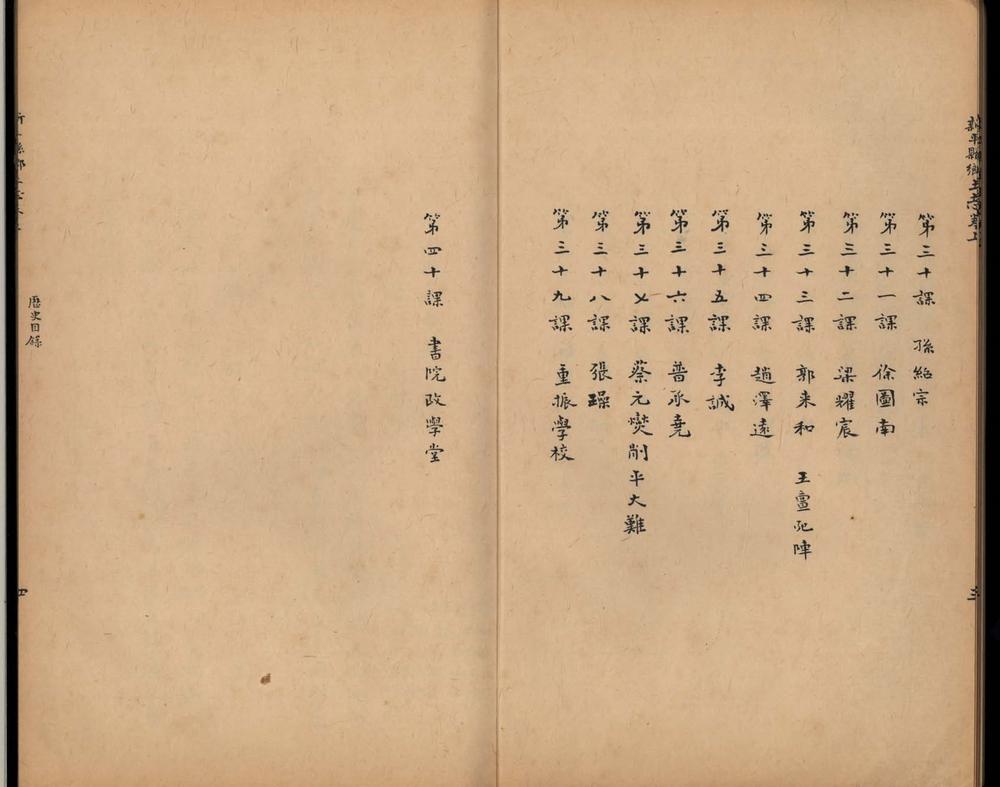 新平縣鄉土志卷上
三
第三十課 孫紹宗
第三十一課 徐圖南
第三十二課 梁耀宸
第三十三課 郭来和 王亶死陣
第三十四課 趙澤遠
第三十五課 李誠
第三十六課 普承堯
第三十七課 蔡元燮削平大難
第三十八課 張璪
第三十九課 重振學校
第四十課 書院政學堂
歷史目錄
四